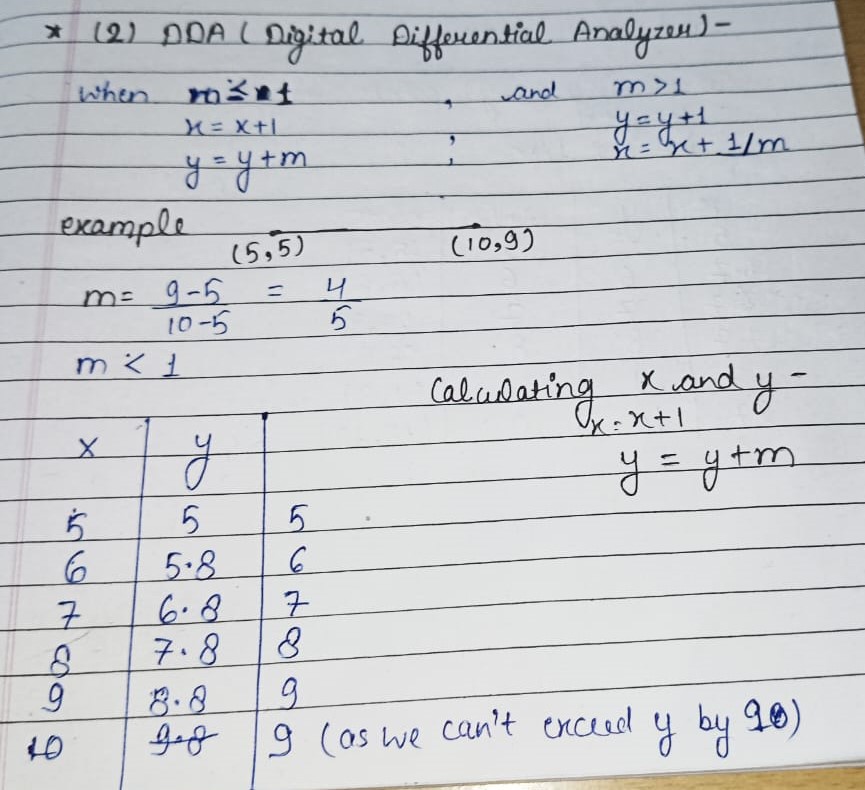 * (2) DDA (Digital Differential Analyzer)-
when m ≤ 1 , and m > 1
x = x+1 , y = y+1
y = y+m ; x = x + 1/m
example (5,5) (10,9)
m = 9-5 / 10-5 = 4 / 5
m < 1
Calculating x and y -
x = x+1
y = y+m
x y
5 5 5
6 5.8 6
7 6.8 7
8 7.8 8
9 8.8 9
10 9.8 9 (as we can't exceed y by 9)